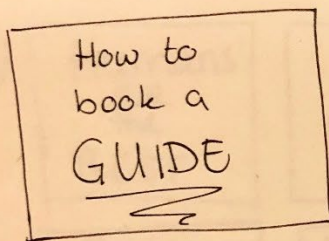 How to
book a
GUIDE